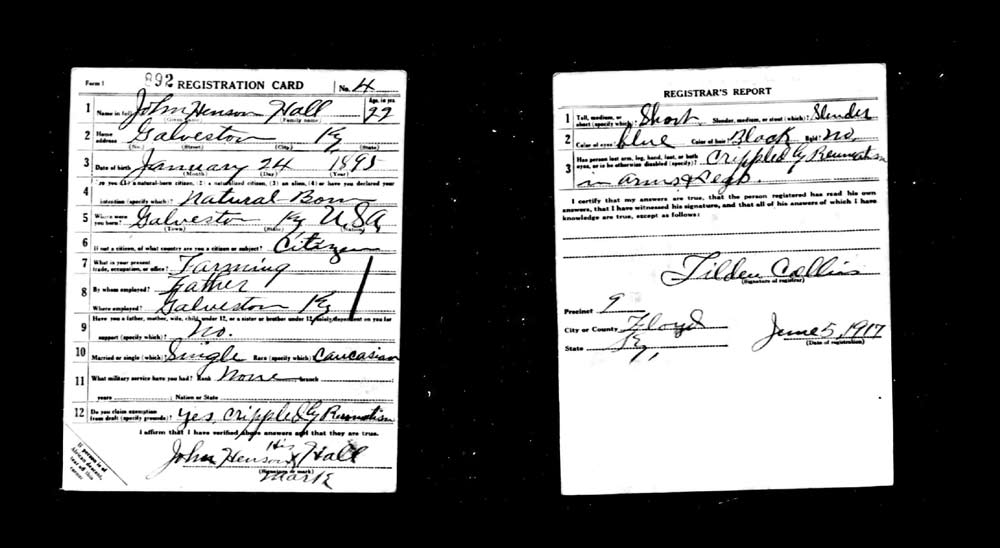 Form 1 892 REGISTRATION CARD No. 4
1 Name in full John Henson Hall Age, in yrs. 22
(Given name) (Family name)
2 Home address Galveston Ky
(No.) (Street) (City) (State)
3 Date of birth January 24 1895
(Month) (Day) (Year)
4 Are you (1) a natural-born citizen, (2) a naturalized citizen, (3) an alien, (4) or have you declared your
intention (specify which)? Natural Born
5 Where were you born? Galveston Ky USA
(Town) (State) (Nation)
6 If not a citizen, of what country are you a citizen or subject? Citizen
7 What is your present trade, occupation, or office? Farming
8 By whom employed? Father
Where employed? Galveston Ky
9 Have you a father, mother, wife, child under 12, or a sister or brother under 12, solely dependent on you for
support (specify which)? No.
10 Married or single (which)? Single Race (specify which)? Caucasian
11 What military service have you had? Rank None branch
years Nation or State
12 Do you claim exemption from draft (specify grounds)? Yes, Crippled by Rumatism
I affirm that I have verified above answers and that they are true.
His
John Henson X Hall
(Signature or mark)
Mark
If person is of African descent, tear off this corner
REGISTRAR'S REPORT
1 Tall, medium, or short (specify which)? Short Slender, medium, or stout (which)? Slender
2 Color of eyes? blue Color of hair? Black Bald? No.
3 Has person lost arm, leg, hand, foot, or both eyes, or is he otherwise disabled (specify)? Crippled by Reumatism
in arms & legs.
I certify that my answers are true, that the person registered has read his own
answers, that I have witnessed his signature, and that all of his answers of which I have
knowledge are true, except as follows:
Tilden Collins
(Signature of registrar)
Precinct 9
City or County Floyd
State Ky,
June 5, 1917
(Date of registration)